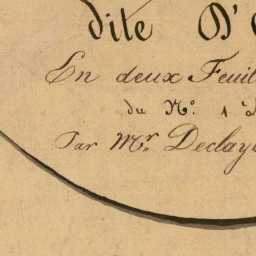 dite D'
En deux Feuil
du N.° 1
Par Mr. Declay